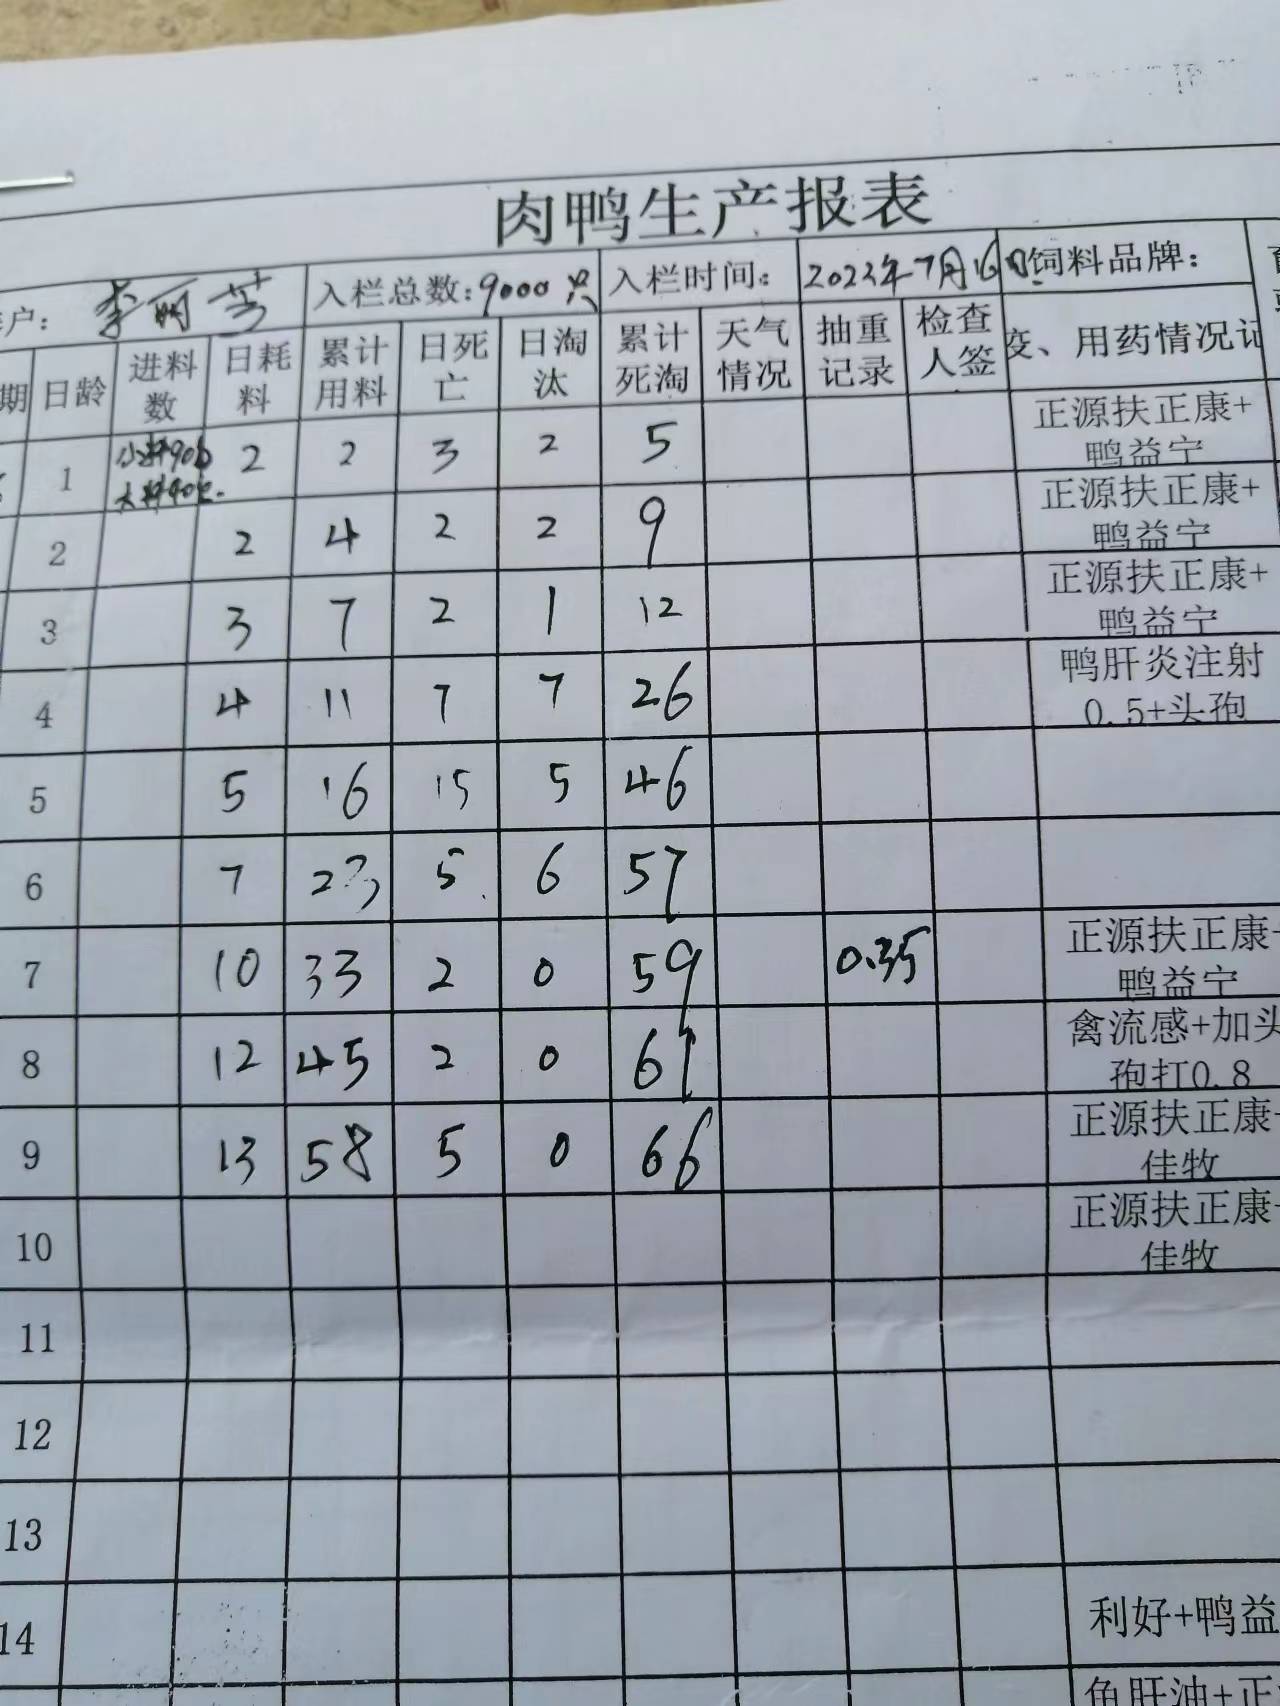 肉鸭生产报表
户: 李丽芳 入栏总数: 9000只 入栏时间: 2022年7月16日 饲料品牌:
期 日龄 进料数 日耗料 累计用料 日死亡 日淘汰 累计死淘 天气情况 抽重记录 检查人签 用药情况记
1 小料90包 2 2 3 2 5 正源扶正康+
大料90包 鸭益宁
2 2 4 2 2 9 正源扶正康+
鸭益宁
3 3 7 2 1 12 正源扶正康+
鸭益宁
4 4 11 7 7 26 鸭肝炎注射
0.5+头孢
5 5 16 15 5 46
6 7 23 5 6 57
7 10 33 2 0 59 0.35 正源扶正康+
鸭益宁
8 12 45 2 0 61 禽流感+加头
孢打0.8
9 13 58 5 0 66 正源扶正康+
佳牧
10 正源扶正康+
佳牧
11
12
13
14 利好+鸭益
鱼肝油+正